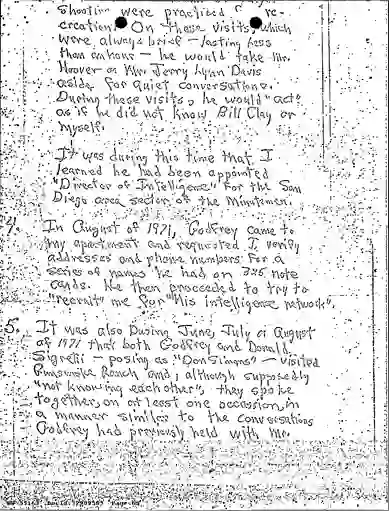 Shooting were practiced for re-
creation. On these visits, which
were always brief - lasting less
than an hour - he would take Mr.
Hoover or Mr. Jerry Lynn Davis
aside for quiet conversations.
During these visits, he would "act"
as if he did not know Bill Clay or
myself.
It was during this time that I
learned he had been appointed
"Director of Intelligence" for the San
Diego area sector of the Minutemen.
4. In August of 1971, Godfrey came to
my apartment and requested I verify
addresses and phone numbers for a
series of names he had on 3x5 note
cards. He then proceeded to try to
"recruit" me for "his intelligence network".
5. It was also During June, July or August
of 1971 that both Godfrey and Donald
Sigretti - posing as "Don Simms" - visited
Ranch and, although supposedly
"not knowing each other", they spoke
together, on at least one occassion, in
a manner similar to the conversations
Godfrey had previously held with Mr.